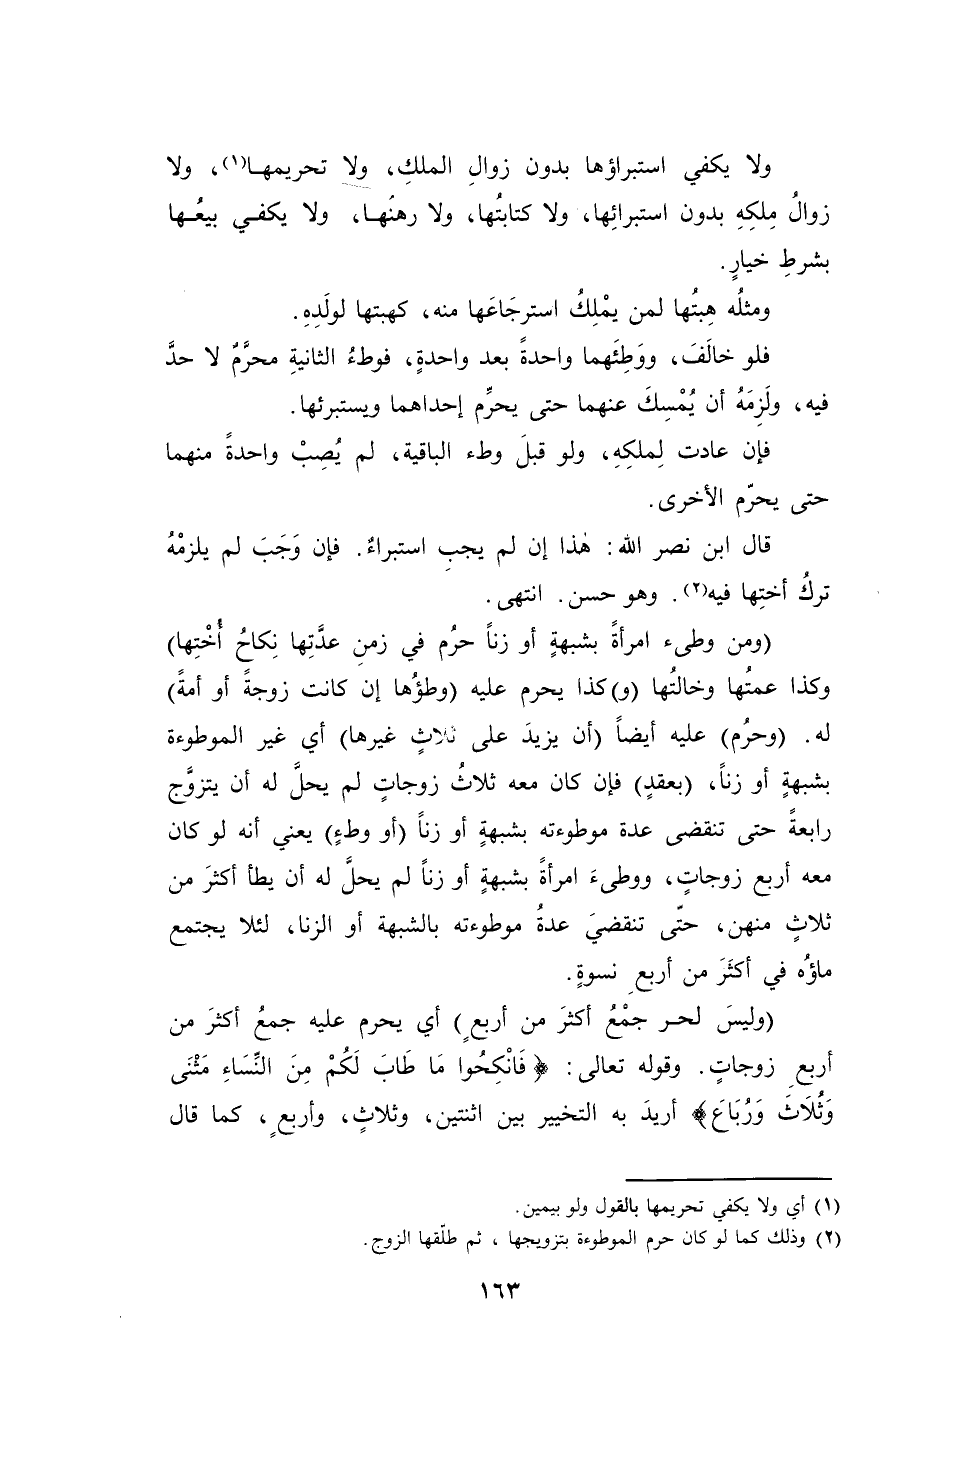 ولا يكفي استبراؤها بدون زوالِ الملكِ، ولا تحريمهـا(١)، ولا
زوالُ مِلكِهِ بدون استبرائِها، ولا كتابتُها، ولا رهنُهـا، ولا يكفـي بيعُـها
بشرطِ خيارٍ.
ومثلُه هِبتُها لمن يمْلِكُ استرجَاعَها منه، كهبتها لولَدِهِ.
فلو خالَفَ، ووَطِئَهما واحدةً بعد واحدةٍ، فوطءُ الثانيةِ محرَّمٌ لا حدَّ
فيه، ولَزِمَهُ أن يُمْسِكَ عنهما حتى يحرِّم إحداهما ويستبرئها.
فإن عادت لِملكِهِ، ولو قبلَ وطء الباقية، لم يُصِبْ واحدةً منهما
حتى يحرّم الأخرى.
قال ابن نصر الله: هٰذا إن لم يجب استبراءٌ. فإن وَجَبَ لم يلزمْهُ
تركُ أختِها فيه(٢). وهو حسن. انتهى.
(ومن وطىء امرأةً بشبهةٍ أو زناً حرُم في زمنِ عدَّتِها نِكاحُ أُخْتِها)
وكذا عمتُها وخالتُها (و)كذا يحرم عليه (وطؤُها إن كانت زوجةً أو أمةً)
له. (وحرُم) عليه أيضاً (أن يزيدَ على ثلاثٍ غيرها) أي غير الموطوءة
بشبهةٍ أو زناً، (بعقدٍ) فإن كان معه ثلاثُ زوجاتٍ لم يحلَّ له أن يتزوَّج
رابعةً حتى تنقضى عدة موطوءته بشبهةٍ أو زناً (أو وطءٍ) يعني أنه لو كان
معه أربع زوجاتٍ، ووطىءَ امرأةً بشبهةٍ أو زناً لم يحلَّ له أن يطأ أكثرَ من
ثلاثٍ منهن، حتّى تنقضيَ عدةُ موطوءته بالشبهة أو الزنا، لئلا يجتمع
ماؤُه في أكثَرَ من أربعِ نسوةٍ.
(وليسَ لحـر جمْعُ أكثرَ من أربعٍ) أي يحرم عليه جمعُ أكثرَ من
أربعِ زوجاتٍ. وقوله تعالى: ﴿فَانْكِحُوا مَا طَابَ لَكُمْ مِنَ النِّسَاءِ مَثْنَى
وَثُلَاثَ وَرُبَاعَ﴾ أريدَ به التخيير بين اثنتين، وثلاثٍ، وأربعٍ، كما قال
(١) أي ولا يكفي تحريمها بالقول ولو بيمين.
(٢) وذلك كما لو كان حرم الموطوءة بتزويجها ، ثم طلّقها الزوج.
١٦٣